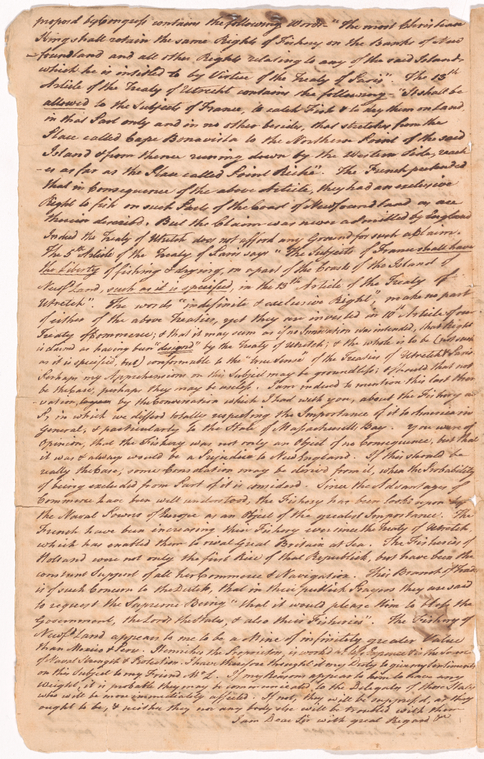 proposed by Congress contains the following Words "The most Christian
King shall retain the same Right of Fishery on the Banks of New
foundland and all other Rights relating to any of the said Islands
which he is intitled to by Virtue of the Treaty of Paris". The 13th
Article of the Treaty of Utrecht contains the following "It shall be
allowed to the Subjects of France, to catch Fish & to dry them on Land
in that Part only and in no other besides, that stretches from the
Place called Cape Bonavista to the Northern Point of the said
Island & from thence running down by the Western Side, reach
-es as far as the Place called Point Riche". The French pretended
that in Consequence of the above Article, they had an exclusive
Right to fish on such Parts of the Coast of Newfoundland as are
therein described. But the Claim was never admitted by England
Indeed the Treaty of Utrecht does not afford any Ground for such a Claim.
The 5th Article of the Treaty of Paris says "The Subjects of France shall have
the Liberty of fishing & drying, on a part of the Coasts of the Island of
Newfd Land, such as it is specified, in the 13th Article of the Treaty of
Utrecht". The words "indefinite & exclusive Right" make no part
of either of the above Treaties, yet they are inserted in 10th Article of our
Treaty of Commerce; & that it may seem as if no Innovation was intended, the Right
is claimed as having been "designed" by the Treaty of Utrecht; & the whole is to be
as it is specified conformable to the "true Sense" of the Treaties of Utrecht & Paris
Perhaps my Apprehensions on this Subject may be groundless; & should that not
be the Case, perhaps they may be useless. I am induced to mention this last
by the Conversation which I had with you, about the Fishery at
P, in which we differed totally respecting the Importance of it to America in
General, & particularly to the State of Massachusetts Bay. You were of
Opinion, that the Fishery was not only an Object of no Consequence, but that
it was & always would be a Prejudice to New England. If this should be
really the Case, some Consolation may be derived from it, when the Probability
of being excluded from Part of it is considered. Since the Advantages of
Commerce have been well understood, the Fishery has been looked upon by
the Naval Powers of Europe as an Object of the greatest Importance. The
French have been increasing their Fishery ever since the Treaty of Utrecht
which has enabled them to rival Great Britain at Sea. The Fisheries of
Holland were not only the first Rise of their Republick, but have been the
constant Support of all her Commerce & Navigation. This Branch of Trade
is of such Concern to the Dutch, that in their publick Prayers they are said
to request the Supreme Being "that it would please Him to bless the
Government, the Lord the States, & also their Fisheries". The Fishery of
Newfd Land appears to me to be a Mine of infinitely greater Value
than Mexico & Peru. It enriches the Proprietor, is worked at less Expence & is the Source
of Naval Strength & Protection. I have therefore thought it my Duty to give my Sentiments
on this Subject to my Friend Mr L. If my Reasons appear to him to have any
Weight, it is probable they may be communicated to the Delegates of those States
who will be more immediately affected. If not, they will be suppressed, as they
ought to be, & neither they nor any body else will be troubled with them
I am Dear Sir with great Regard &c